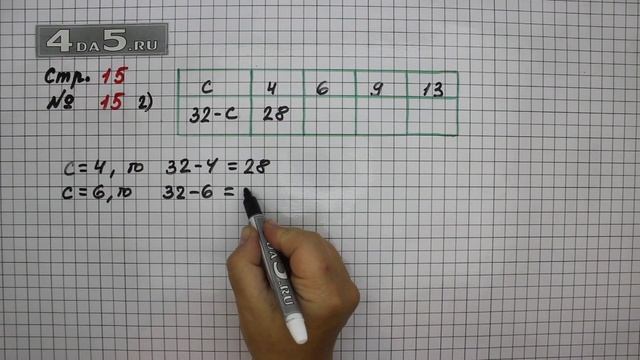 4DA5.RU
Стр. 15
№ 15 2)
с 4 6 9 13
32-с 28
с=4, то 32-4=28
с=6, то 32-6=
4DA5.RU